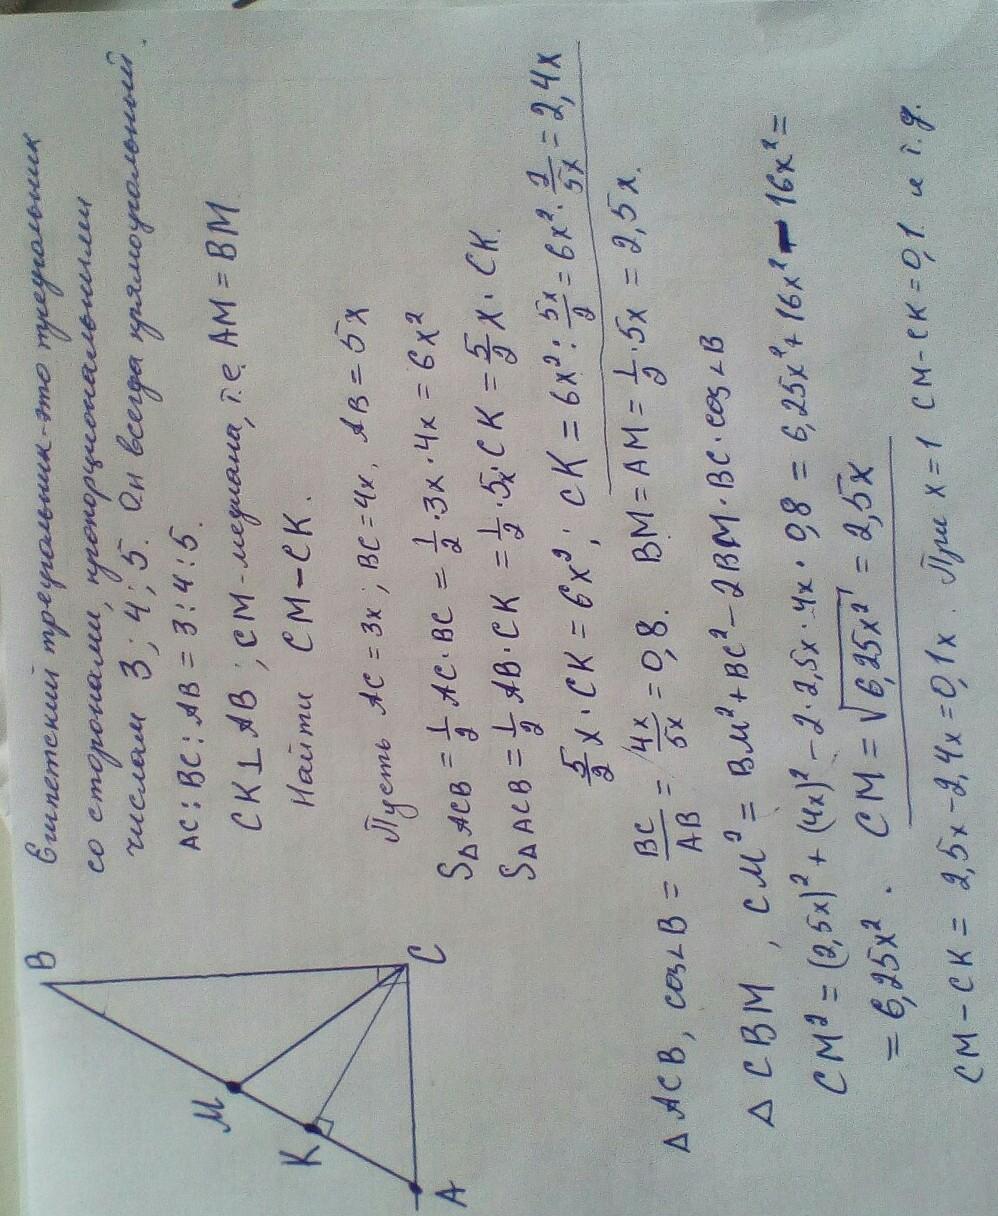 Египетский треугольник - это треугольник
со сторонами, пропорциональными
числам 3; 4; 5. Он всегда прямоугольный.
AC:BC:AB = 3:4:5.
CK⊥AB; CM-медиана, т.е. AM = BM
Найти CM-CK.
B
M
K
A
C
Пусть AC = 3x; BC = 4x, AB = 5x
S△ACB = 1/2 AC·BC = 1/2·3x·4x = 6x²
S△ACB = 1/2 AB·CK = 1/2·5x·CK = 5/2 x·CK.
5/2 x·CK = 6x²; CK = 6x² : 5x/2 = 6x²·2/5x = 2,4x
△ACB, cos∠B = BC/AB = 4x/5x = 0,8. BM = AM = 1/2·5x = 2,5x.
△CBM, CM² = BM² + BC² - 2BM·BC·cos∠B
CM² = (2,5x)² + (4x)² - 2·2,5x·4x·0,8 = 6,25x² + 16x² - 16x² =
= 6,25x². CM = √6,25x² = 2,5x
CM-CK = 2,5x-2,4x = 0,1x. При x=1 CM-CK=0,1 и т.д.